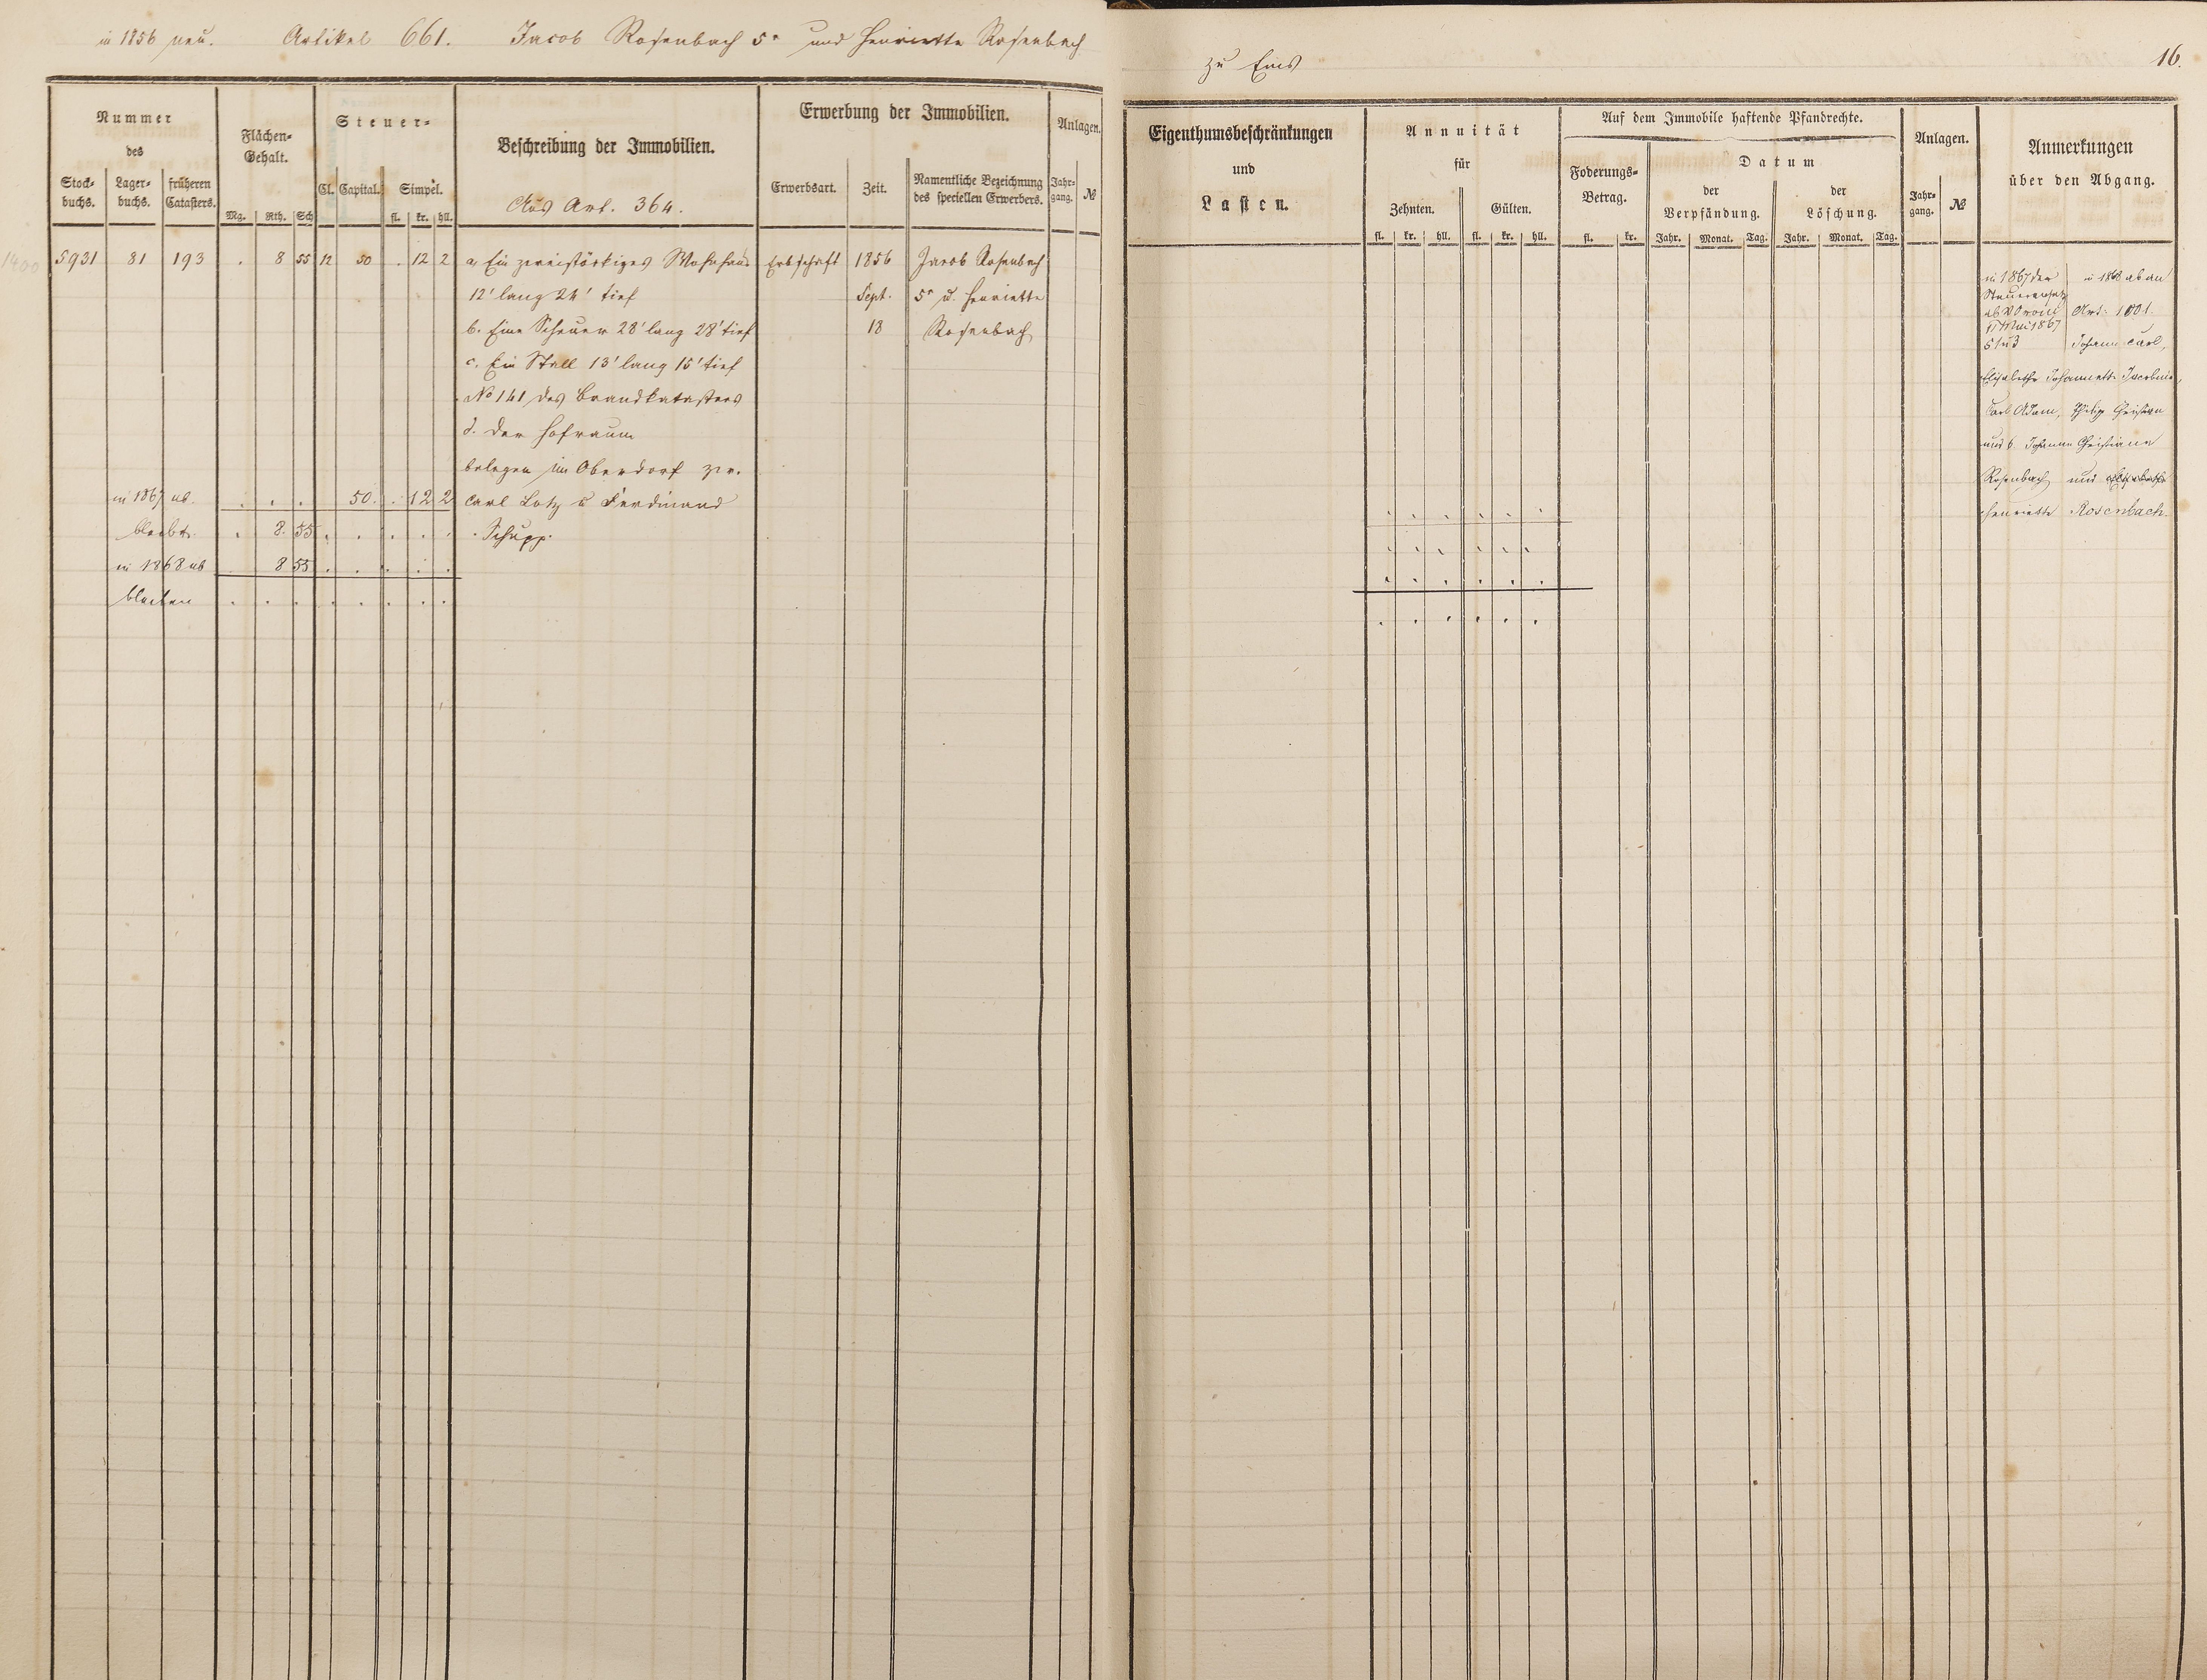 in 1856 neu. Artikel 661. Jacob Rosenbach 5r und Henriette Rosenbach
Nummer
des
Stock-
buchs.
Lager-
buchs.
früheren
Catasters.
Flächen-
Gehalt.
Mg. Rth. Sch
Steuer-
Cl. Capital. Simpel.
fl. kr. hll.
Beschreibung der Immobilien.
Aus Art. 364.
Erwerbung der Immobilien.
Erwerbsart. Zeit.
Namentliche Bezeichnung
des speciellen Erwerbers.
Anlagen.
Jahr-
gang. №
1400
5931 81 193 . 8 55 12 50 . 12 2 a. Ein zweistöckiges Wohnhaus Erbschaft 1856 Jacob Rosenbach
12' lang 24' tief Sept. 5r u. Henriette
b. Eine Scheuer 28' lang 28' tief 18 Rosenbach
c. Ein Stall 13' lang 15' tief
No 141 des Brandkatasters
d. der Hofraum
belegen im Oberdorf zw.
in 1867 ab. . . . 50. . 12 2 Carl Lotz u Ferdinand
bleibt. . 8. 55 . . . . . Schupp.
in 1868 ab 8 55 . . . . .
bleiben . . . . . . . .
zu Ems
16.
Eigenthumsbeschränkungen
und
Lasten.
Annuität
für
Zehnten. Gülten.
fl. kr. hll. fl. kr. hll.
Auf dem Immobile haftende Pfandrechte.
Foderungs-
Betrag.
fl. kr.
Datum
der
Verpfändung.
Jahr. Monat. Tag.
der
Löschung.
Jahr. Monat. Tag.
Anlagen.
Jahr-
gang. №
Anmerkungen
über den Abgang.
in 1867 der
Steueransatz
ab
Mai 1867
in 1868 ab an
Art: 1001.
Johann Carl,
Elisabethe Johannette Jacobine,
Carl Adam, Philipp Christian
und Johanne Christiane
Rosenbach und
Henriette Rosenbach.